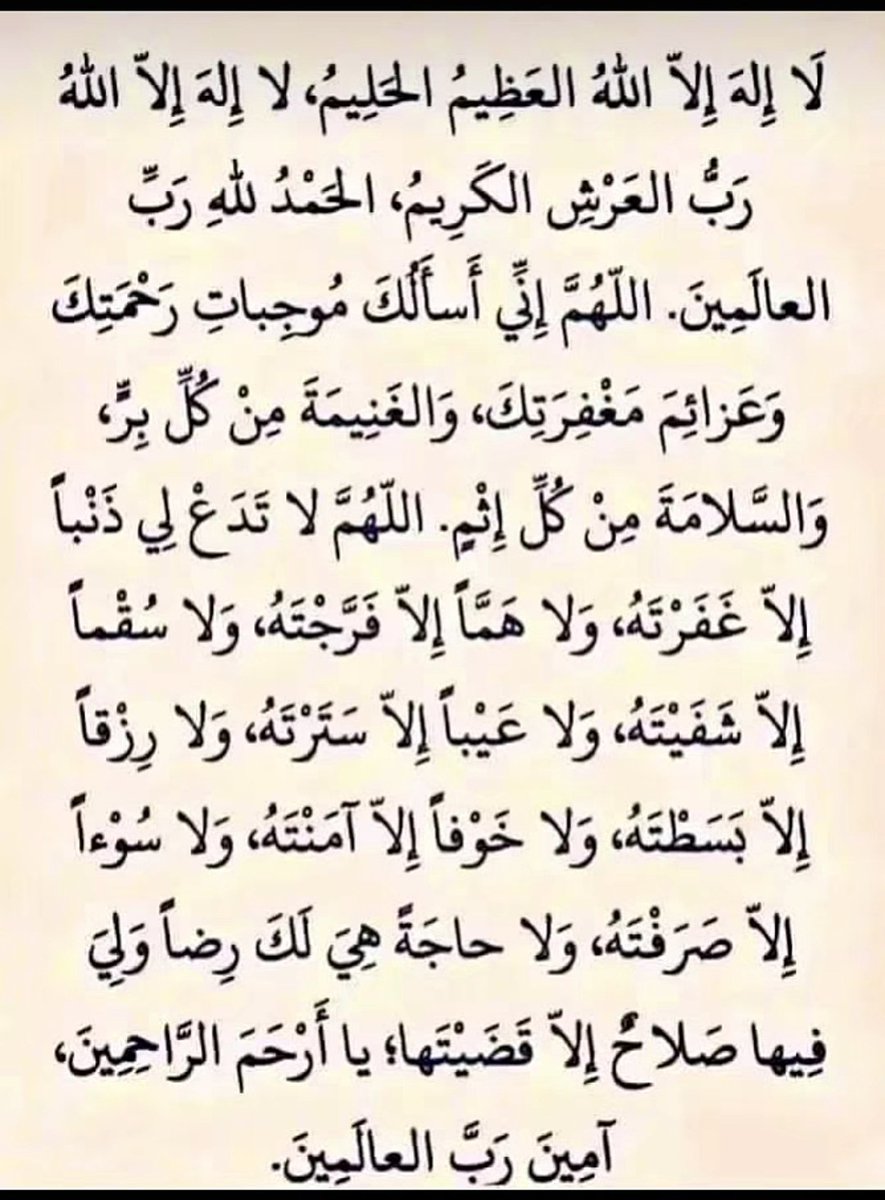 لَا إِلهَ إِلاّ اللهُ العَظِيمُ الحَلِيمُ، لا إِلهَ إِلاّ اللهُ
رَبُّ العَرْشِ الكَرِيمُ، الحَمْدُ للهِ رَبِّ
العالَمِينَ. اللّهُمَّ إِنِّي أَسأَلُكَ مُوجِباتِ رَحْمَتِكَ
وَعَزائِمَ مَغْفِرَتِكَ، وَالغَنِيمَةَ مِنْ كُلِّ بِرٍّ،
وَالسَّلامَةَ مِنْ كُلِّ إِثْمٍ. اللّهُمَّ لا تَدَعْ لِي ذَنْباً
إِلاّ غَفَرْتَهُ، وَلا هَمَّاً إِلاّ فَرَّجْتَهُ، وَلا سُقْماً
إِلاّ شَفَيْتَهُ، وَلا عَيْباً إِلاّ سَتَرْتَهُ، وَلا رِزْقاً
إِلاّ بَسَطْتَهُ، وَلا خَوْفاً إِلاّ آمَنْتَهُ، وَلا سُوْءاً
إِلاّ صَرَفْتَهُ، وَلا حاجَةً هِيَ لَكَ رِضاً وَلِيَ
فِيها صَلاحٌ إِلاّ قَضَيْتَها؛ يا أَرْحَمَ الرَّاحِمِينَ،
آمِينَ رَبَّ العالَمِينَ.